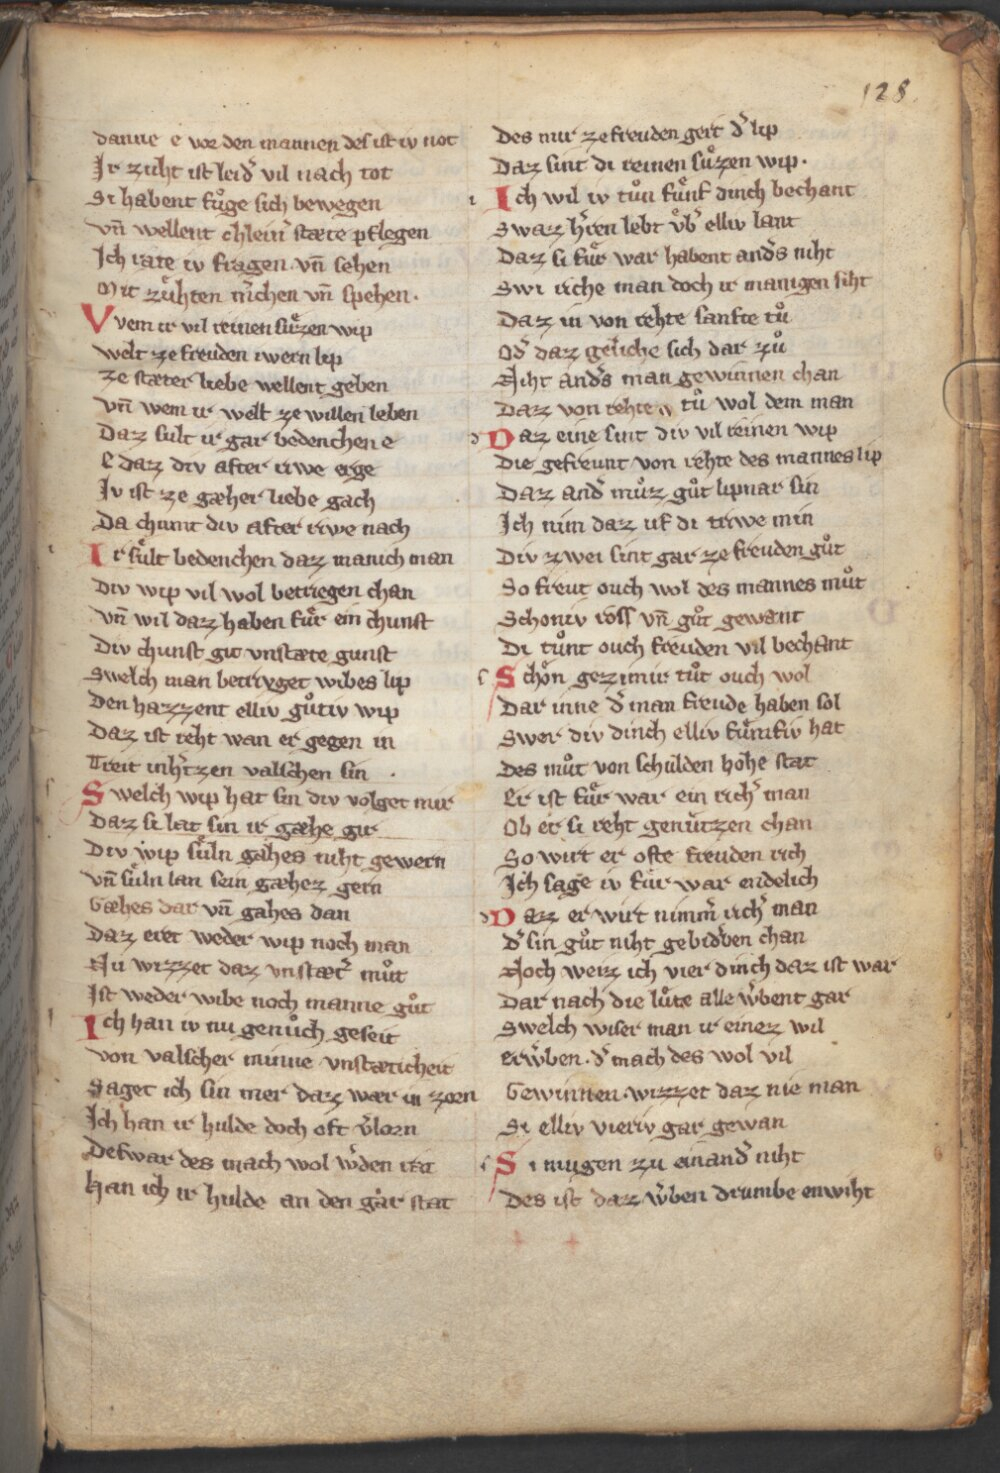 128
danne e vor den mannen des ist iv not
Ir zuht ist leid͛ vil nach tot
Si habent fuͦge sich bewegen
vn̄ wellent chlein͛ stæte pflegen
Ich rate iv fragen vn̄ sehen
Mit zuͤhten m͛chen vn̄ spehen.
Vvem ir vil reinen suͤzen wip
welt ze freuden iwern lip
ze stæter liebe wellent geben
vn̄ wem ir welt ze willen leben
Daz sult ir gar bedenchen e
E daz div after riwe erge
Iv ist ze gæher liebe gach
Da chumt div after riwe nach
Ir suͤlt bedenchen daz manich man
Div wip vil wol betriegen chan
vn̄ wil daz haben fuͤr ein chunst
Div chunst git vnstæte gunst
Swelch man betrivget wibes lip
Den hazzent elliv guͦtiv wip
Daz ist reht wan er gegen in
Treit in h͛tzen valschen sin .
Swelch wip hat sin div volget mir
Daz si lat sin ir gæhe gir
Div wip suͤln gahes niht gewern
vn̄ suͤln lan sein gæhez gern
Gæhes dar vn̄ gahes dan
Daz eret weder wip noch man
Nu wizzet daz vnstæt͛ muͦt
Ist weder wibe noch manne guͦt
Ich han iv nu genuͦch geseit
von valscher minne vnstæticheit
Saget ich sin mer daz wær in zorn
Ich han ir hulde doch oft v͛lorn
Deswar des mach wol w͛den rat
Han ich ir hulde an den gar stat
Des mir ze freuden gert d͛ lip
Daz sint di reinen suͤzen wip.
Ich wil iv tuͦn fuͤnf dinch bechant
Swaz h͛ren lebt uͤb͛ elliv lant
Daz si fuͤr war habent and͛s niht
Swi riche man doch ir manigen siht
Daz in von rehte sanfte tuͦ
Od͛ daz geliche sich dar zuͦ
Niht and͛s man gewinnen chan
Daz von rehte tuͦ wol dem man
Daz eine sint div vil reinen wip
Die gefreunt von rehte des mannes lip
Daz and͛ muͦz guͦt lipnar sin
Ich nim daz uf di triwe min
Div zwei sint gar ze freuden guͦt
So freut ouch wol des mannes muͦt
Schoniv ross vn̄ guͦt gewant
Di tuͦnt ouch freuden vil bechant
Schoͤn gezimir tuͦt ouch wol
Dar inne d͛ man freude haben sol
Swer div dinch elliv fuͤnfiv hat
Des muͦt von schulden hohe stat
Er ist fuͤr war ein rich͛ man
Ob er si reht genuͤtzen chan
So wirt er ofte freuden rich
Ich sage iv fuͤr war endelich
Daz er wirt nimm͛ rich͛ man
D͛ sin guͦt niht gebid͛ben chan
Noch weiz ich vier dinch daz ist war
Dar nach die luͤte alle w͛bent gar
Swelch wiser man ir einez wil
erw͛ben. d͛ mach des wol vil
Gewinnen. wizzet daz nie man
Si elliv vieriv gar gewan
Si mugen zu einand͛ niht
Des ist daz w͛ben drumbe enwiht